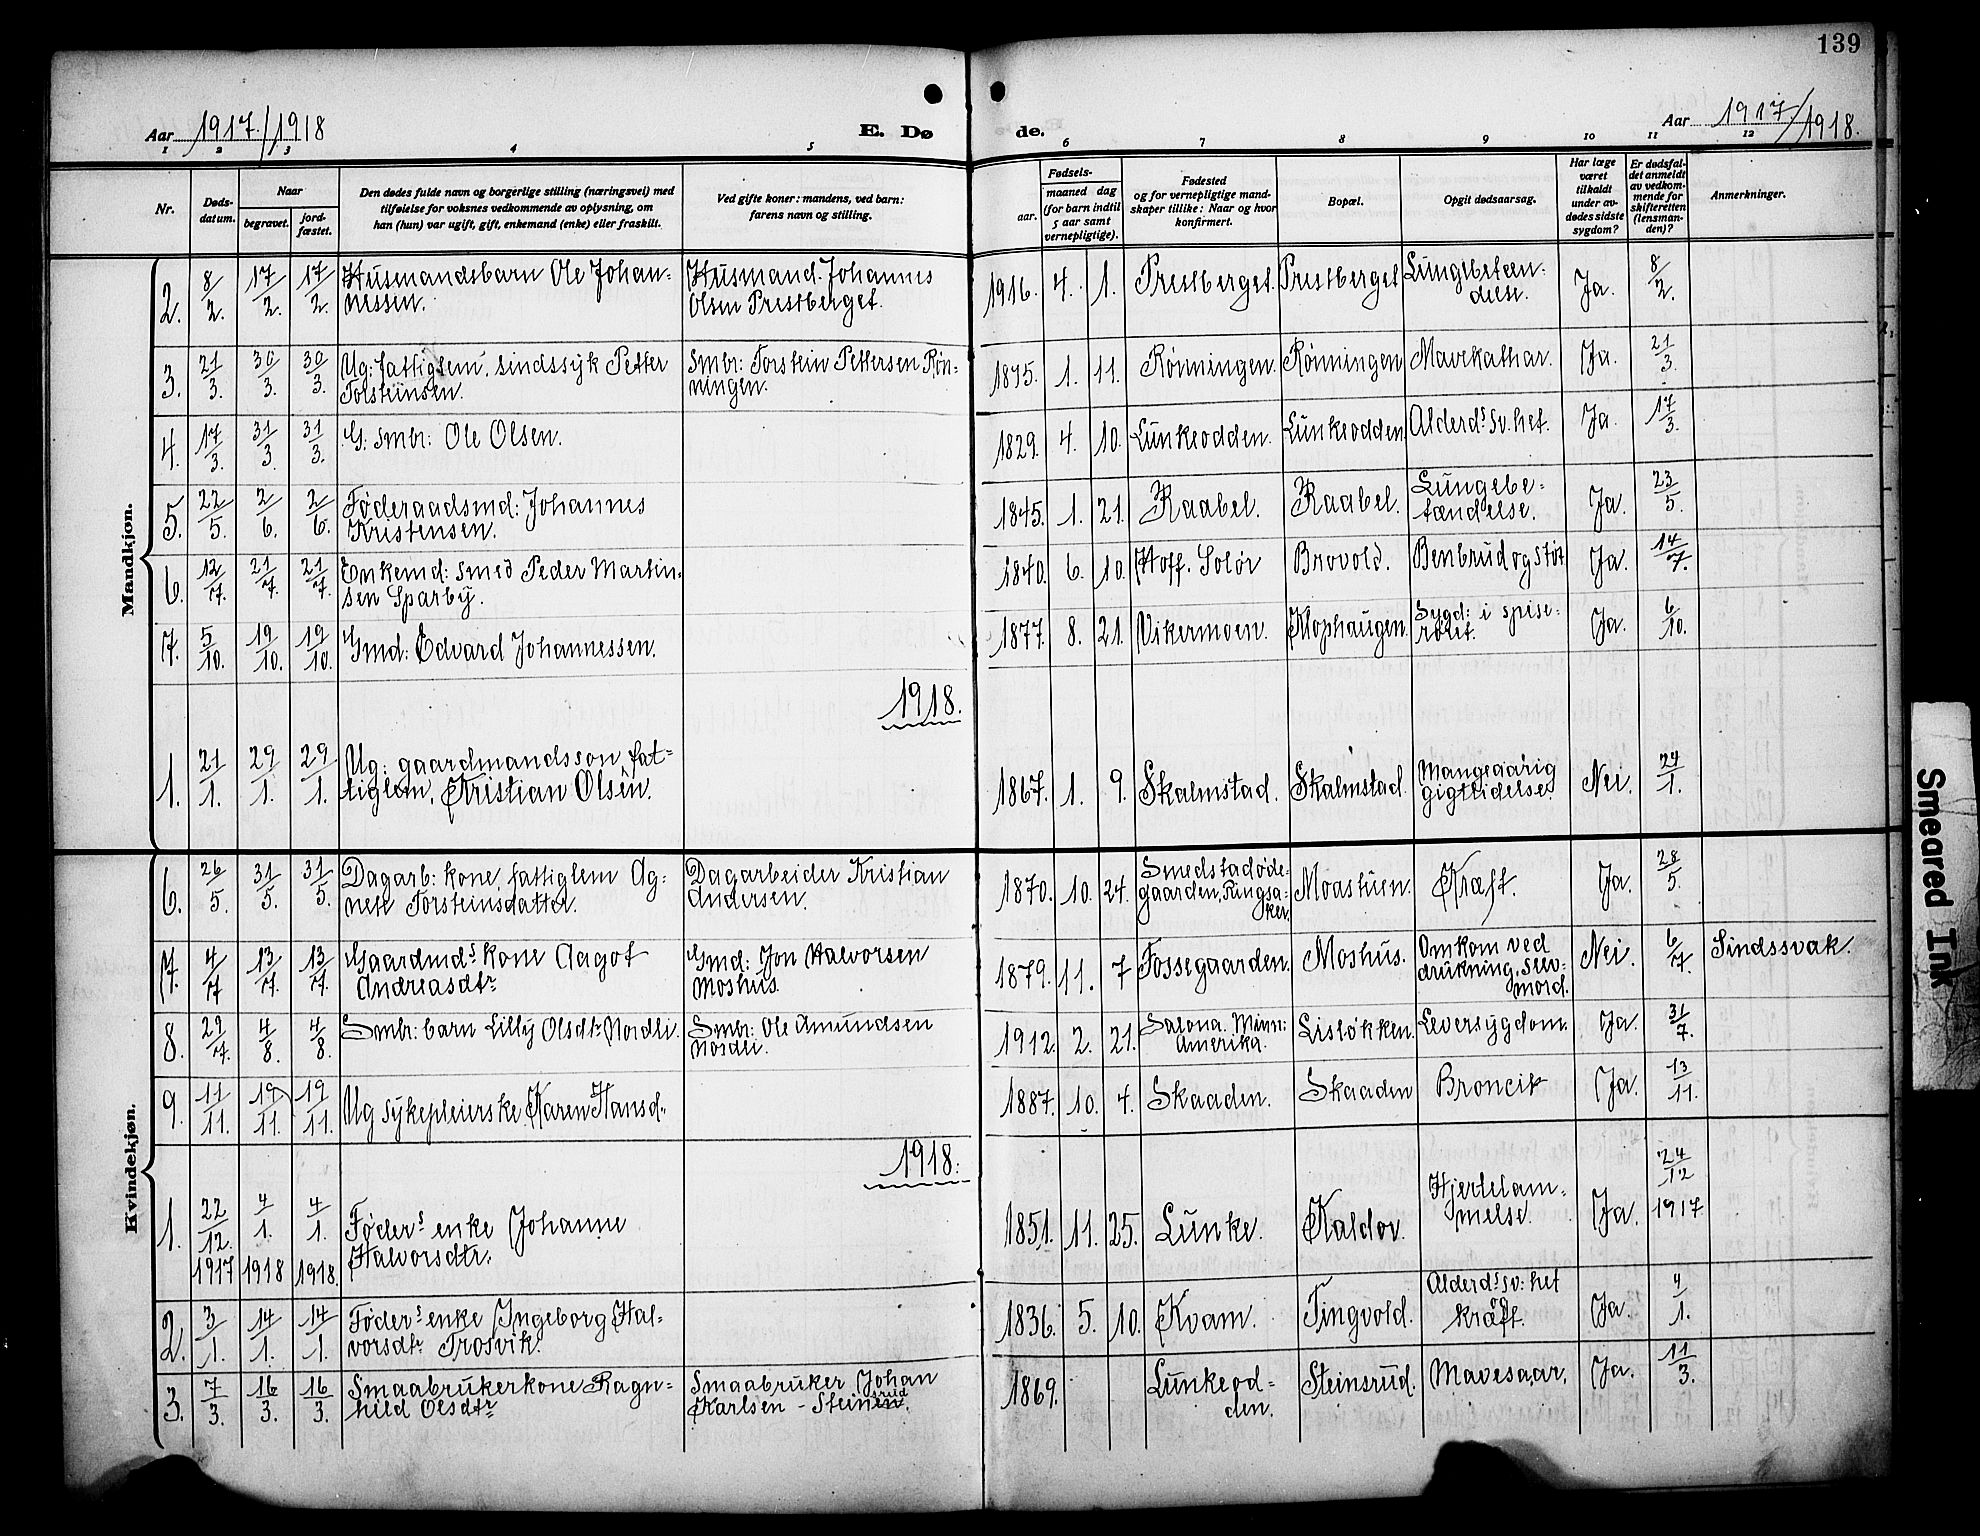 139
Aar 1917./1918
E. Dø
de.
Aar 1917/1918.
1 2 3 4 5 6 7 8 9 10 11 12
Nr.
Døds-
datum.
Naar
begravet.
jord-
fæstet.
Den dødes fulde navn og borgerlige stilling (næringsvei) med
tilføielse for voksnes vedkommende av oplysning, om
han (hun) var ugift, gift, enkemand (enke) eller fraskilt.
Ved gifte koner: mandens, ved barn:
farens navn og stilling.
Fødsels-
aar.
maaned dag
(for barn indtil
5 aar samt
vernepligtige).
Fødested
og for vernepligtige mand-
skaper tillike: Naar og hvor
konfirmert.
Bopæl.
Opgit dødsaarsag.
Har læge
været
tilkaldt
under av-
dødes sidste
sygdom?
Er dødsfal-
det anmeldt
av vedkom-
mende for
skifteretten
(lensman-
den)?
Anmerkninger.
Mandkjøn.
2. 8/2. 17/2. 17/2. Husmandsbarn Ole Johan-
nessen.
Husmand Johannes
Olsen Prestberget.
1916. 4. 1. Prestberget. Prestberget Lungebetæn-
delse.
Ja. 8/2.
3. 21/3. 30/3. 30/3. Ug: fattiglem, sindssyk Petter
Torsteinsen.
Smbr: Torstein Pettersen Røn-
ningen.
1875. 1. 11. Rønningen. Rønningen Mavekathar. Ja. 21/3.
4. 17/3. 31/3. 31/3. G. smbr: Ole Olsen.
1829. 4. 10. Lunkeodden. Lunkeodden Alderds sv.het. Ja. 17/3.
5. 22/5. 2/6. 2/6. Føderaadsmd: Johannes
Kristensen.
1845. 1. 21. Raabel. Raabel. Lungebe-
tændelse.
Ja. 23/5.
6. 12/7. 21/7. 21/7. Enkemd: Smed Peder Martin-
sen Sparby.
1840. 6. 10. Hoff. Solør Brovold. Benbrud og støt Ja. 14/7.
7. 5/10. 19/10. 19/10. Gmd: Edvard Johannessen.
1877. 8. 21. Vikermoen. Klophaugen. Sygd: i spise-
røret.
Ja. 6/10.
1918.
1. 21/1. 29/1. 29/1. Ug: gaardmandssøn, fat-
tiglem, Kristian Olsen.
1867. 1. 9. Skalmstad. Skalmstad. Mangeaarig
gigtlidelse.
Nei. 24/1.
Kvindekjøn.
6. 26/5. 31/5. 31/5. Dagarb: kone, fattiglem Ag-
nete Torsteinsdatter.
Dagarbeider Kristian
Andersen.
1870. 10. 24. Smedstadøde-
gaarden, Ringsa-
ker.
Moastuen. Kræft. Ja. 28/5.
7. 4/7 13/7. 13/7. Gaardmds kone Aagot
Andreasdtr
Gmd: Jon Halvorsen
Moshus.
1879. 11. 7 Fossegaarden. Moshus. Omkom ved
drukning, selv-
mord.
Nei. 6/7. Sindssvak.
8. 29/7. 4/8. 4/8. Smbr: barn Lilly Olsdtr Nordli.
Smbr: Ole Amundsen
Nordli.
1912. 2. 21. Salona. Minn:
Amerika.
Lisløkken. Leversygdom. Ja. 31/7.
9. 11/11. 19/11. 19/11. Ug sykepleierske Karen Hansd.
1887. 10. 4. Skaaden. Skaaden Broncit Ja. 13/11.
1918.
1. 22/12. 1917 4/1. 1918 4/1. 1918. Føders enke Johanne
Halvorsdtr.
1851. 11. 25. Lunke. Kaldor. Hjertelam-
melse.
Ja. 24/12 1917
2. 3/1. 14/1. 14/1. Føders enke Ingeborg Hal-
vorsdtr Trosvik.
1836. 5. 10. Kvam. Tingvold. Alderds sv:het
og
kræft.
Ja. 4/1.
3. 7/3. 16/3. 16/3. Smaabrukerkone Ragn-
hild Olsdtr
Smaabruker Johan
Karlsen - Steinsrud.
1869. Lunkeod-
den.
Steinsrud. Mavesaar, Ja. 11/3.
Smeared Ink